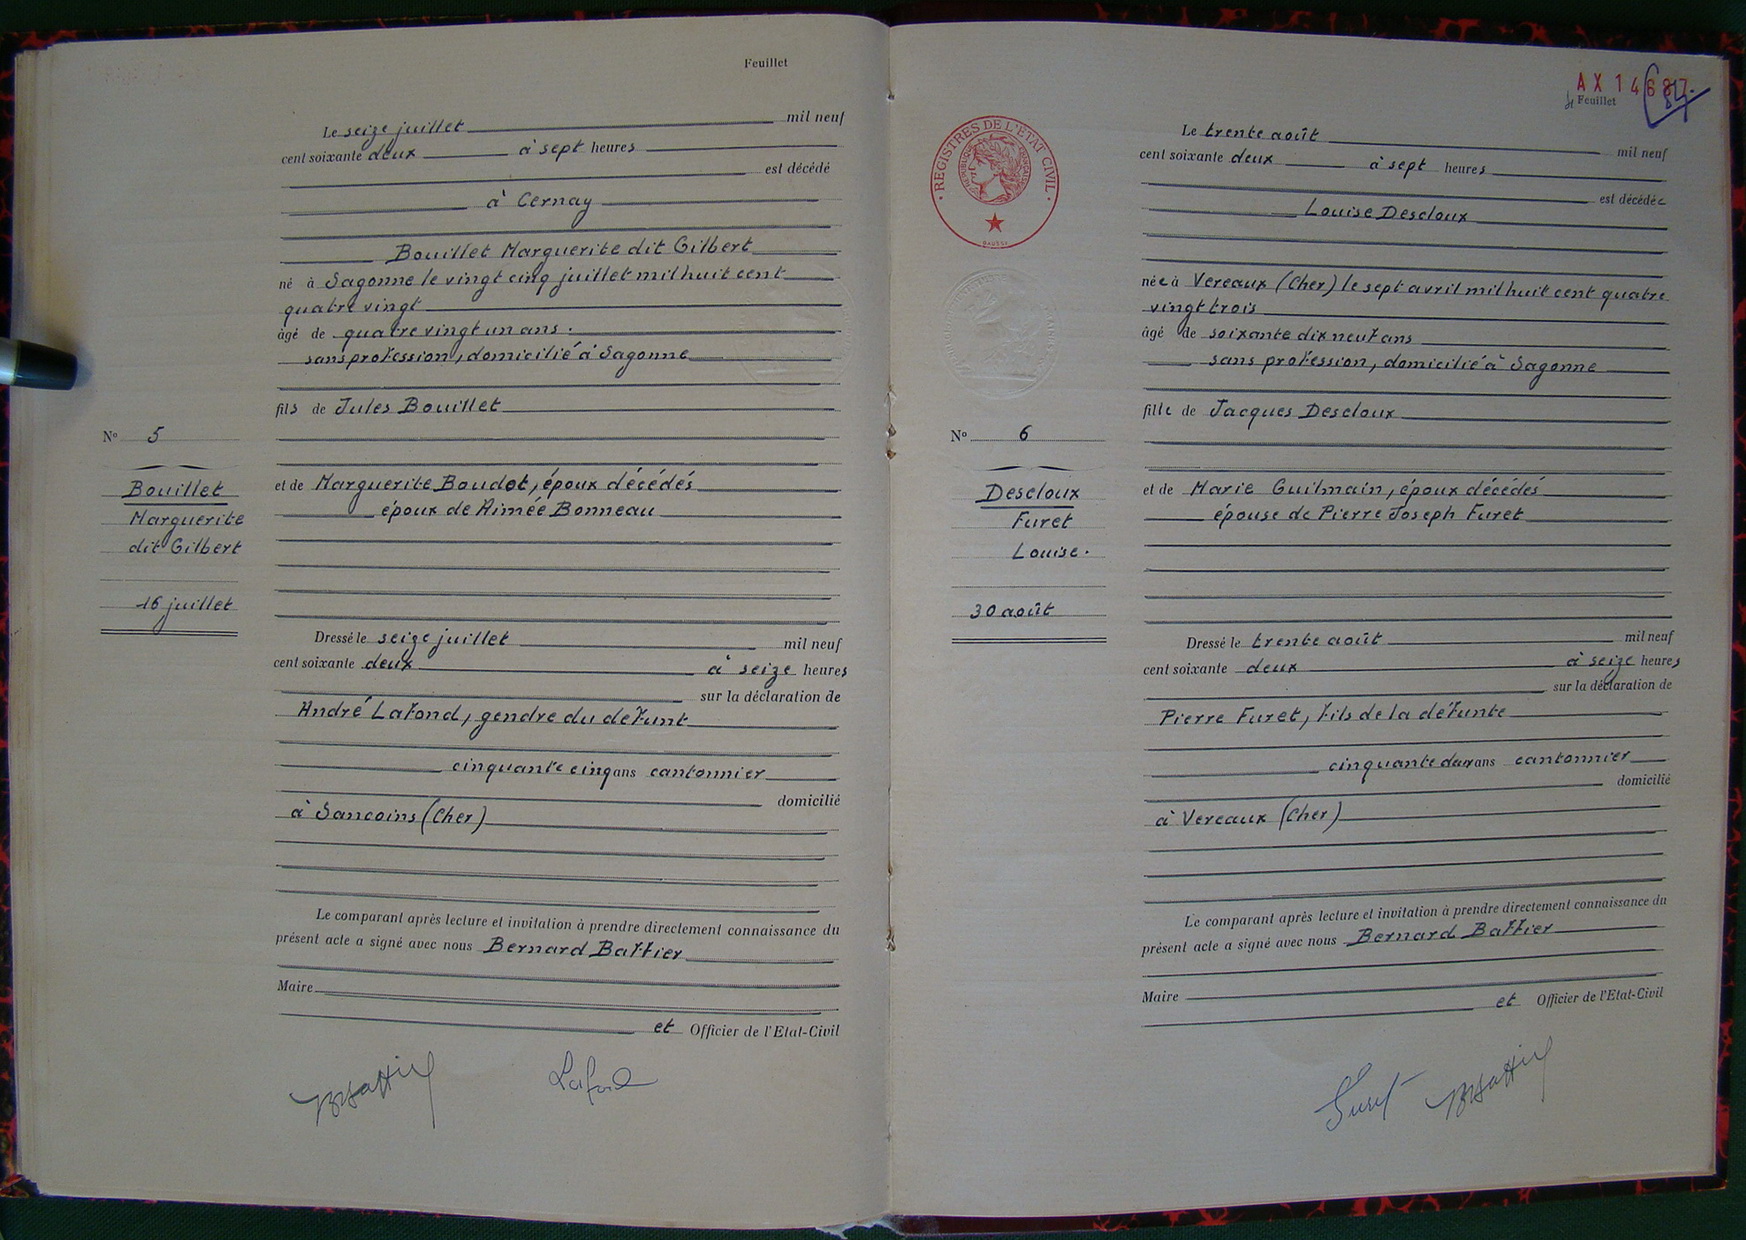 Feuillet
Le seize juillet mil neuf
cent soixante deux à sept heures
est décédé
à Cernay
Bouillet Marguerite dit Gilbert
né à Sagonne le vingt cinq juillet mil huit cent
quatre vingt
âgé de quatre vingt un ans.
sans profession, domicilié à Sagonne
fils de Jules Bouillet
et de Marguerite Baudot, époux décédés
époux de Aimée Bonneau
Dressé le seize juillet mil neuf
cent soixante deux à seize heures
sur la déclaration de
André Lafond, gendre du défunt
cinquante cinq ans cantonnier
domicilié
à Sancoins (Cher)
Le comparant après lecture et invitation à prendre directement connaissance du
présent acte a signé avec nous Bernard Battier
Maire
et Officier de l'Etat-Civil
Lafond
No 5
Bouillet
Marguerite
dit Gilbert
16 juillet
AX 14687
Feuillet
REGISTRES DE L'ETAT CIVIL
REPUBLIQUE FRANCAISE
Le trente août mil neuf
cent soixante deux à sept heures
est décédée
Louise Descloux
née à Vereaux (Cher) le sept avril mil huit cent quatre
vingt trois
âgé de soixante dix neuf ans
sans profession, domicilié à Sagonne
fille de Jacques Descloux
et de Marie Guilmain, époux décédés
épouse de Pierre Joseph Furet
Dressé le trente août mil neuf
cent soixante deux à seize heures
sur la déclaration de
Pierre Furet, fils de la défunte
cinquante deux ans cantonnier
domicilié
à Vereaux (Cher)
Le comparant après lecture et invitation à prendre directement connaissance du
présent acte a signé avec nous Bernard Battier
Maire
et Officier de l'Etat-Civil
Furet
No 6
Descloux
Furet
Louise.
30 août